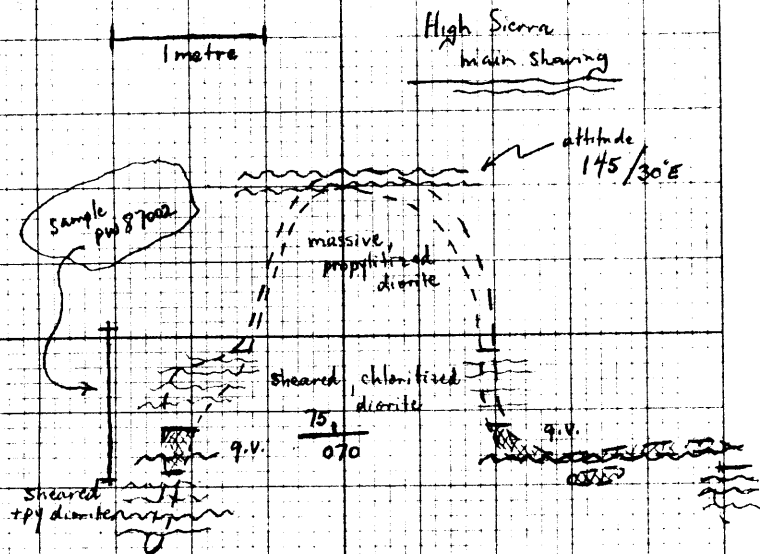 High Sierra
main showing
1 metre
attitude
145/30°E
sample
PW87002
massive,
propylitized
diorite
sheared, chloritized
diorite
75
070
q.v.
q.v.
sheared
+py diorite